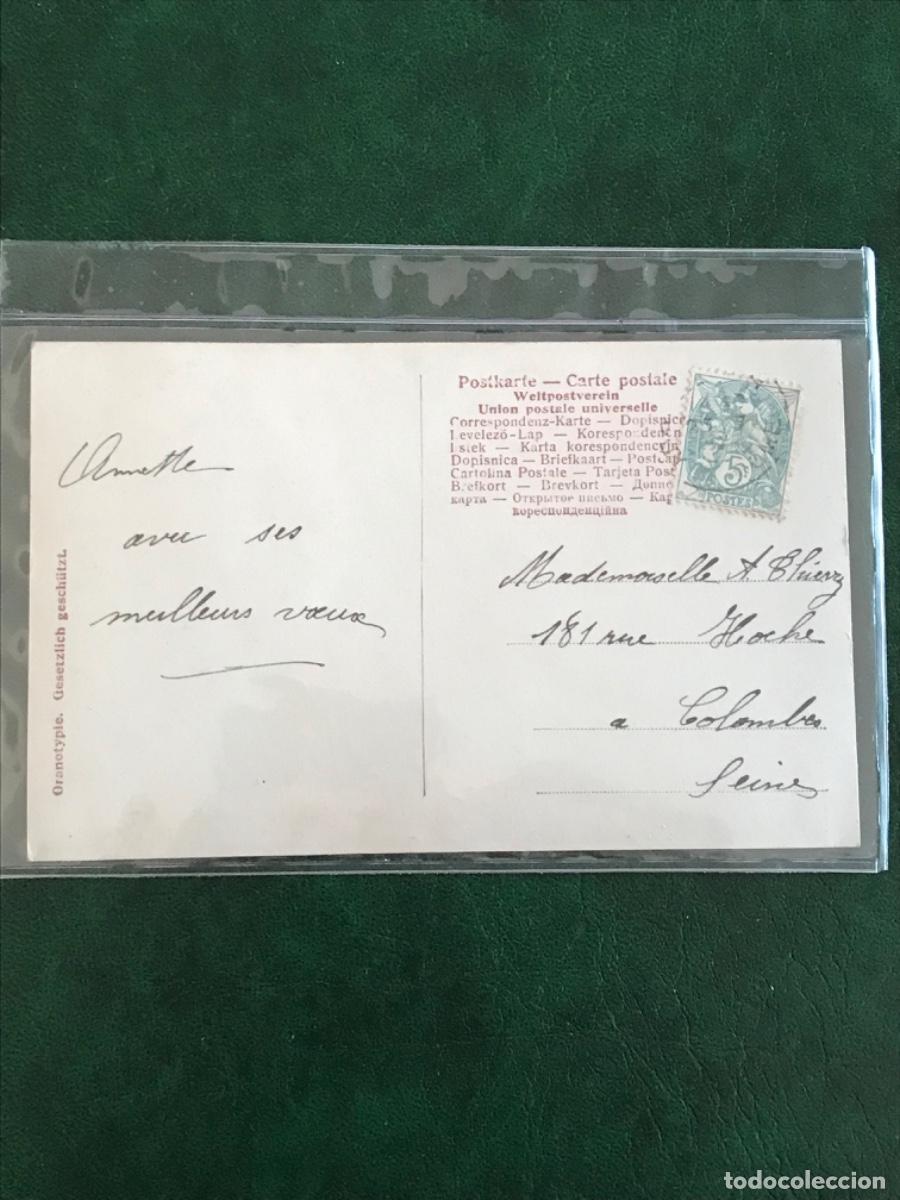 Postkarte — Carte postale
Weltpostverein
Union postale universelle
Correspondenz-Karte — Dopisnice
Levelező-Lap — Korespondencn
Listek — Karta korespondencyjn
Dopisnica — Briefkaart — PostCar
Cartolina Postale — Tarjeta Post
Brefkort — Brevkort — Допис
карта — Открытое письмо — Кар
кореспонденційна
5
POSTES
Annette
avec ses
meilleurs vœux
Oranotypie. Gesetzlich geschützt.
Mademoiselle A Thierry
181 rue Hoche
a Colombes
Seine
todocoleccion